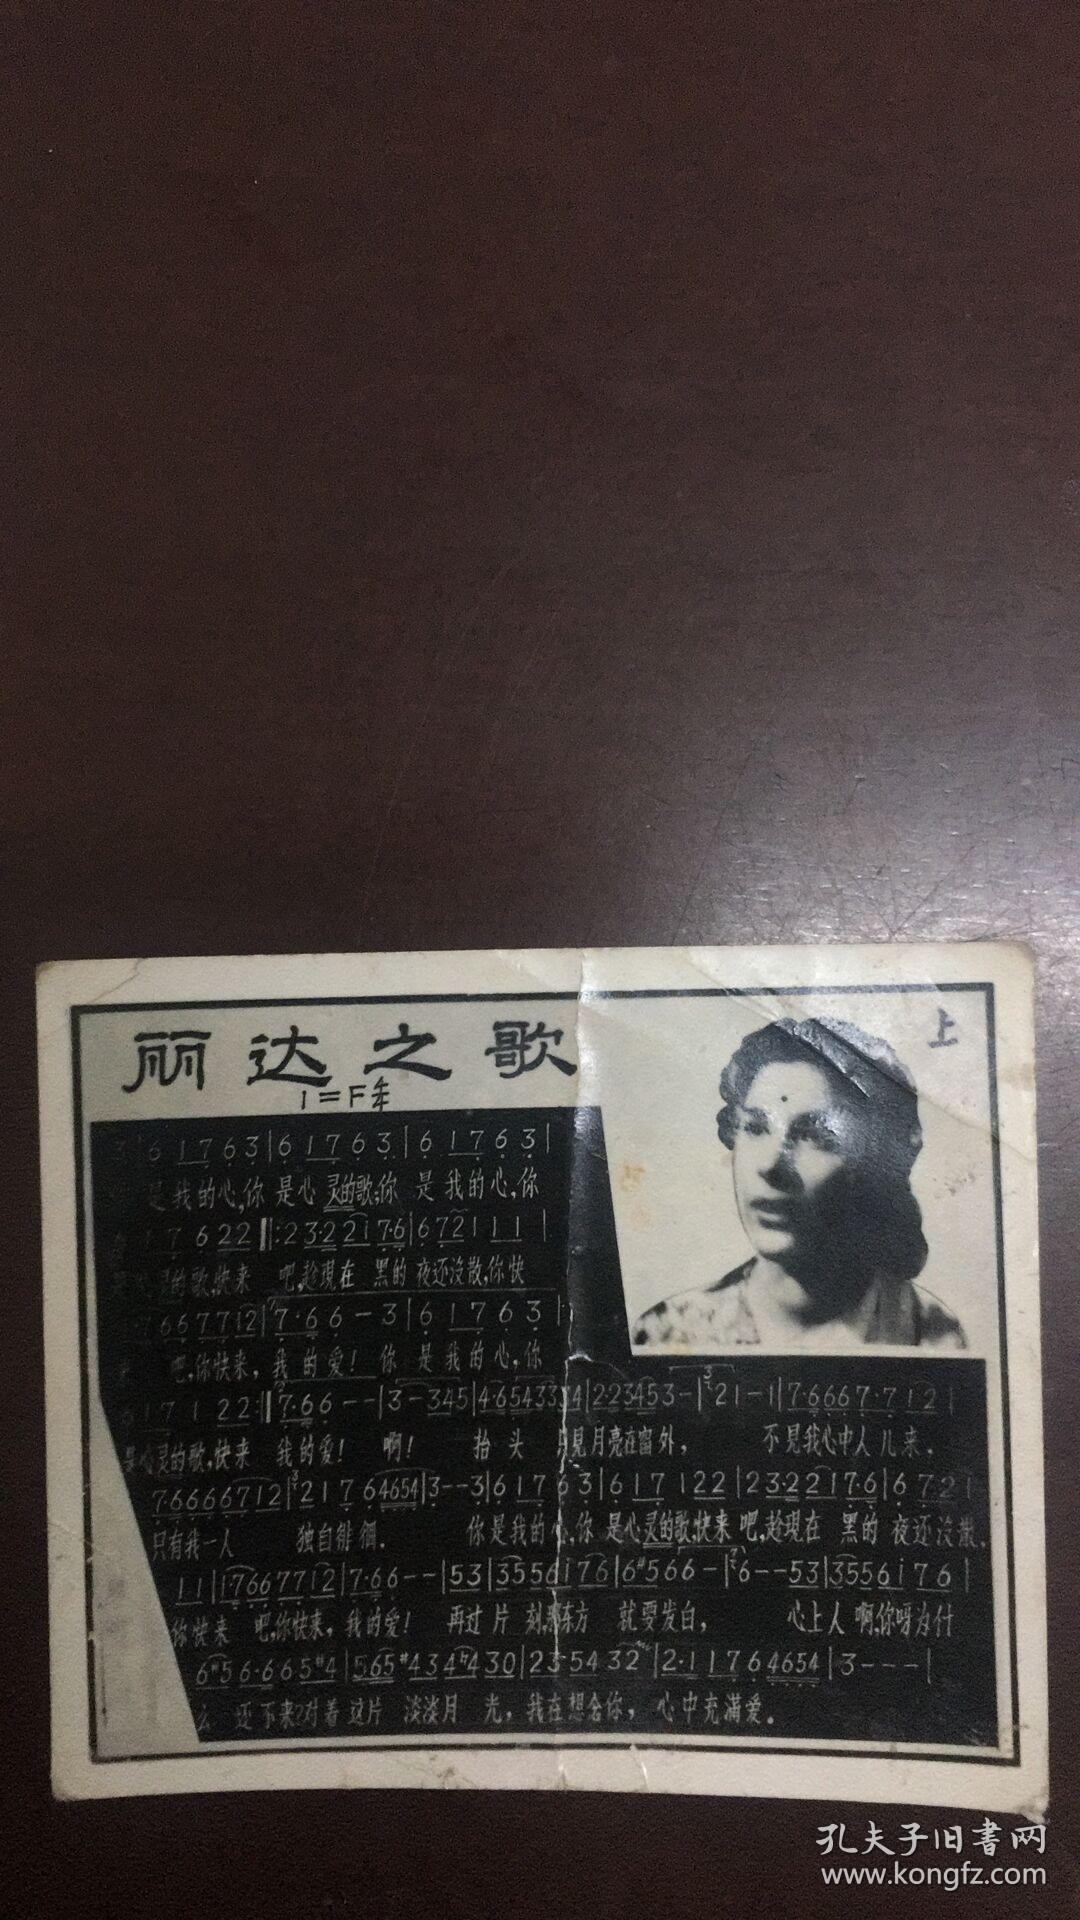 丽达之歌
上
1=F 4/4
3|6 1 7 6 3|6 1 7 6 3|6 1 7 6 3|
是我的心,你 是心灵的歌;你 是我的心,你
1 7 6 22‖:2 3·2 2 1 7·6|6 7 2 1 1 1|
灵的歌,快来 吧,趁現在 黑的 夜还没散,你快
6 6 7 7 1 2|7·6 6 - 3|6 1 7 6 3|
吧,你快来,我的爱! 你 是我的心,你
6 1 7 1 2 2:‖7·6 6 - -|3 - 3 4 5|4·6 5 4 3 3 3 4|2·2 3 4 5 3 -|2 1 - 1|7·6 6 6 7·7 1 2|
是心灵的歌,快来 我的爱! 啊! 抬头 只見月亮在窗外, 不見我心中人儿来.
7·6 6 6 6 7 1 2|2 1 7 6 4 6 5 4|3 - - 3|6 1 7 6 3|6 1 7 1 2 2|2 3·2 2 1 7·6|6 7 2 1
只有我一人 独自徘徊. 你是我的心,你 是心灵的歌,快来 吧,趁現在 黑的 夜还没散,
1 1|1 7 6 6 7 7 1 2|7·6 6 - -|5 3|3 5 5 6 1 7 6|6 #5 6 6 -|6 - - 5 3|3 5 5 6 1 7 6|
你快来 吧,你快来,我的爱! 再过片刻,那东方 就要发白, 心上人啊,你呀为什
6 #5 6·6 6 5 #4|5 6 5 #4 3 4 4 3 0|2 3 5 4 3 2|2·1 1 7 6 4 6 5 4|3 - - -|
么 还不来?对着这片 淡淡月 光,我在想念你, 心中充滿爱。
孔夫子旧書网
www.kongfz.com